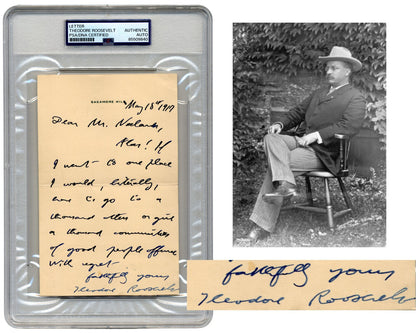 LETTER
THEODORE ROOSEVELT AUTHENTIC
PSA/DNA CERTIFIED AUTO
SAGAMORE HILL
May 1917
Dear Mr.
Alas! If
I went to one place
I would, literally,
have to go to a
thousand others or give
a thousand communities
of good people offense
With regret
faithfully yours
Theodore Roosevelt
faithfully yours
Theodore Roosevelt